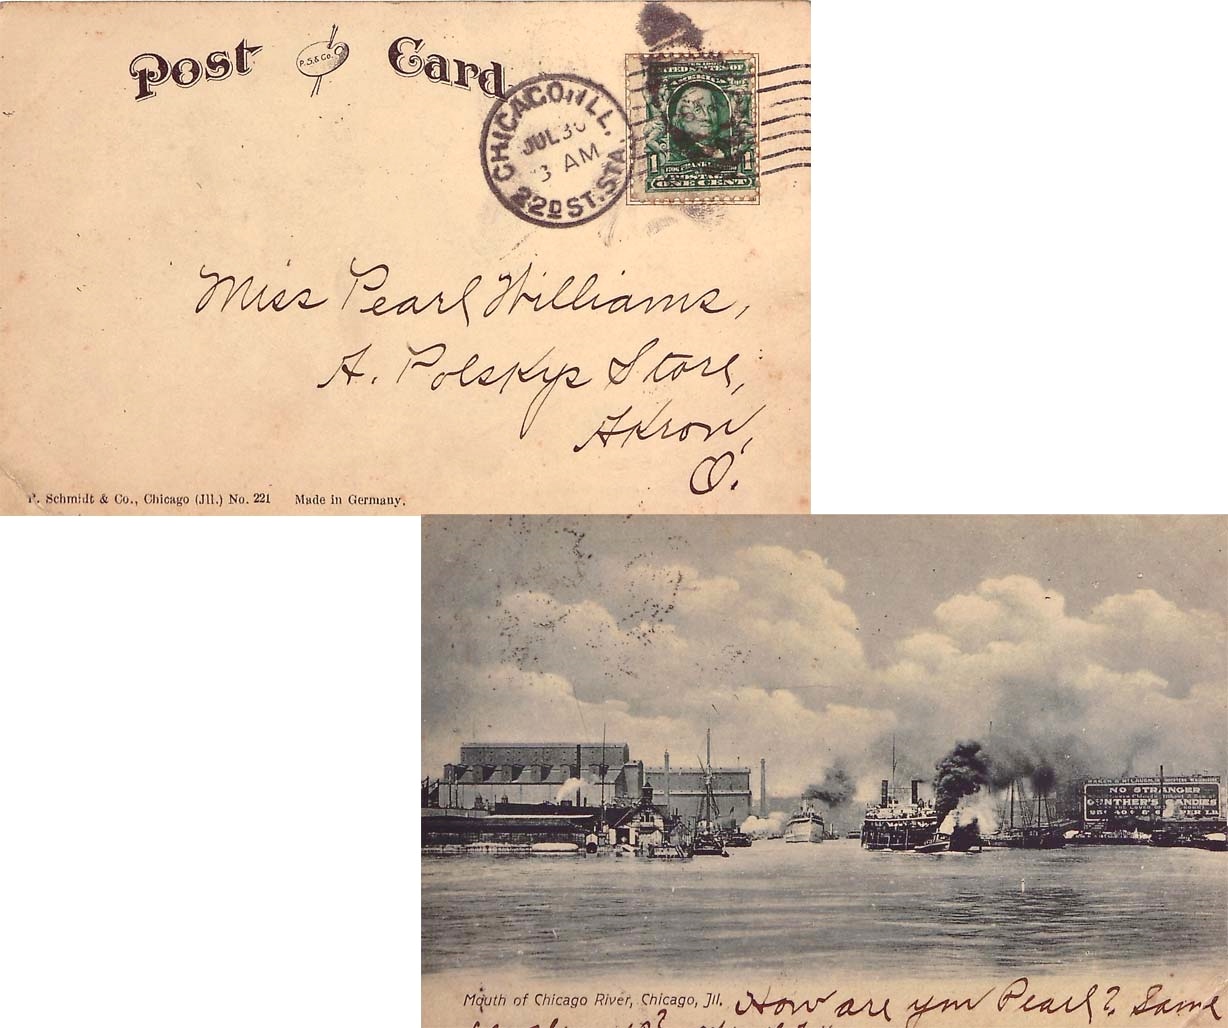 Post Card
P. S. & Co.
CHICAGO, ILL.
JUL 30
3 AM
22D ST. STA.
UNITED STATES OF
AMERICA
1 1
POSTAGE
ONE CENT
Miss Pearl Williams,
A. Polskys Store,
Akron,
O.
P. Schmidt & Co., Chicago (Jll.) No. 221 Made in Germany.
NO STRANGER
GUNTHER'S CANDIES
Mouth of Chicago River, Chicago, Jll.
How are you Pearl? Same